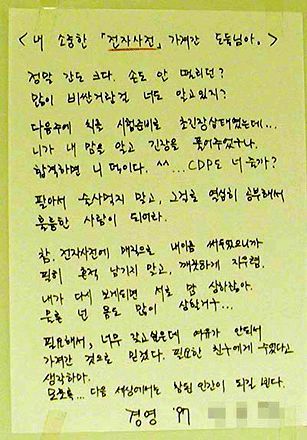 < 내 소중한 「전자사전」 가져간 도둑님아. >
정말 간도 크다. 손도 안 떨리던?
많이 비싼거란걸 너도 알고있지?
다음주에 치를 시험준비로 초긴장상태였는데...
니가 내 맘을 알고 긴장을 풀어주었구나.
합격하면 니 덕이다. ^^ ...CDP도 너 줄까?
팔아서 술사먹지 말고, 그걸로 열심히 공부해서
훌륭한 사람이 되어라.
참. 전자사전에 매직으로 내이름 써두었으니까
필히 흔적 남기지 말고, 깨끗하게 지우렴.
내가 다시 보게되면 서로 맘 상하잖아.
물론 넌 몸도 많이 상할거구...
필요해서, 너무 갖고싶은데 여유가 안되서
가져간 것으로 믿겠다. 필요한 친구에게 주었다고
생각하마.
모쪼록... 다음 세상에서는 참된 인간이 되길 빈다.
경영 '97